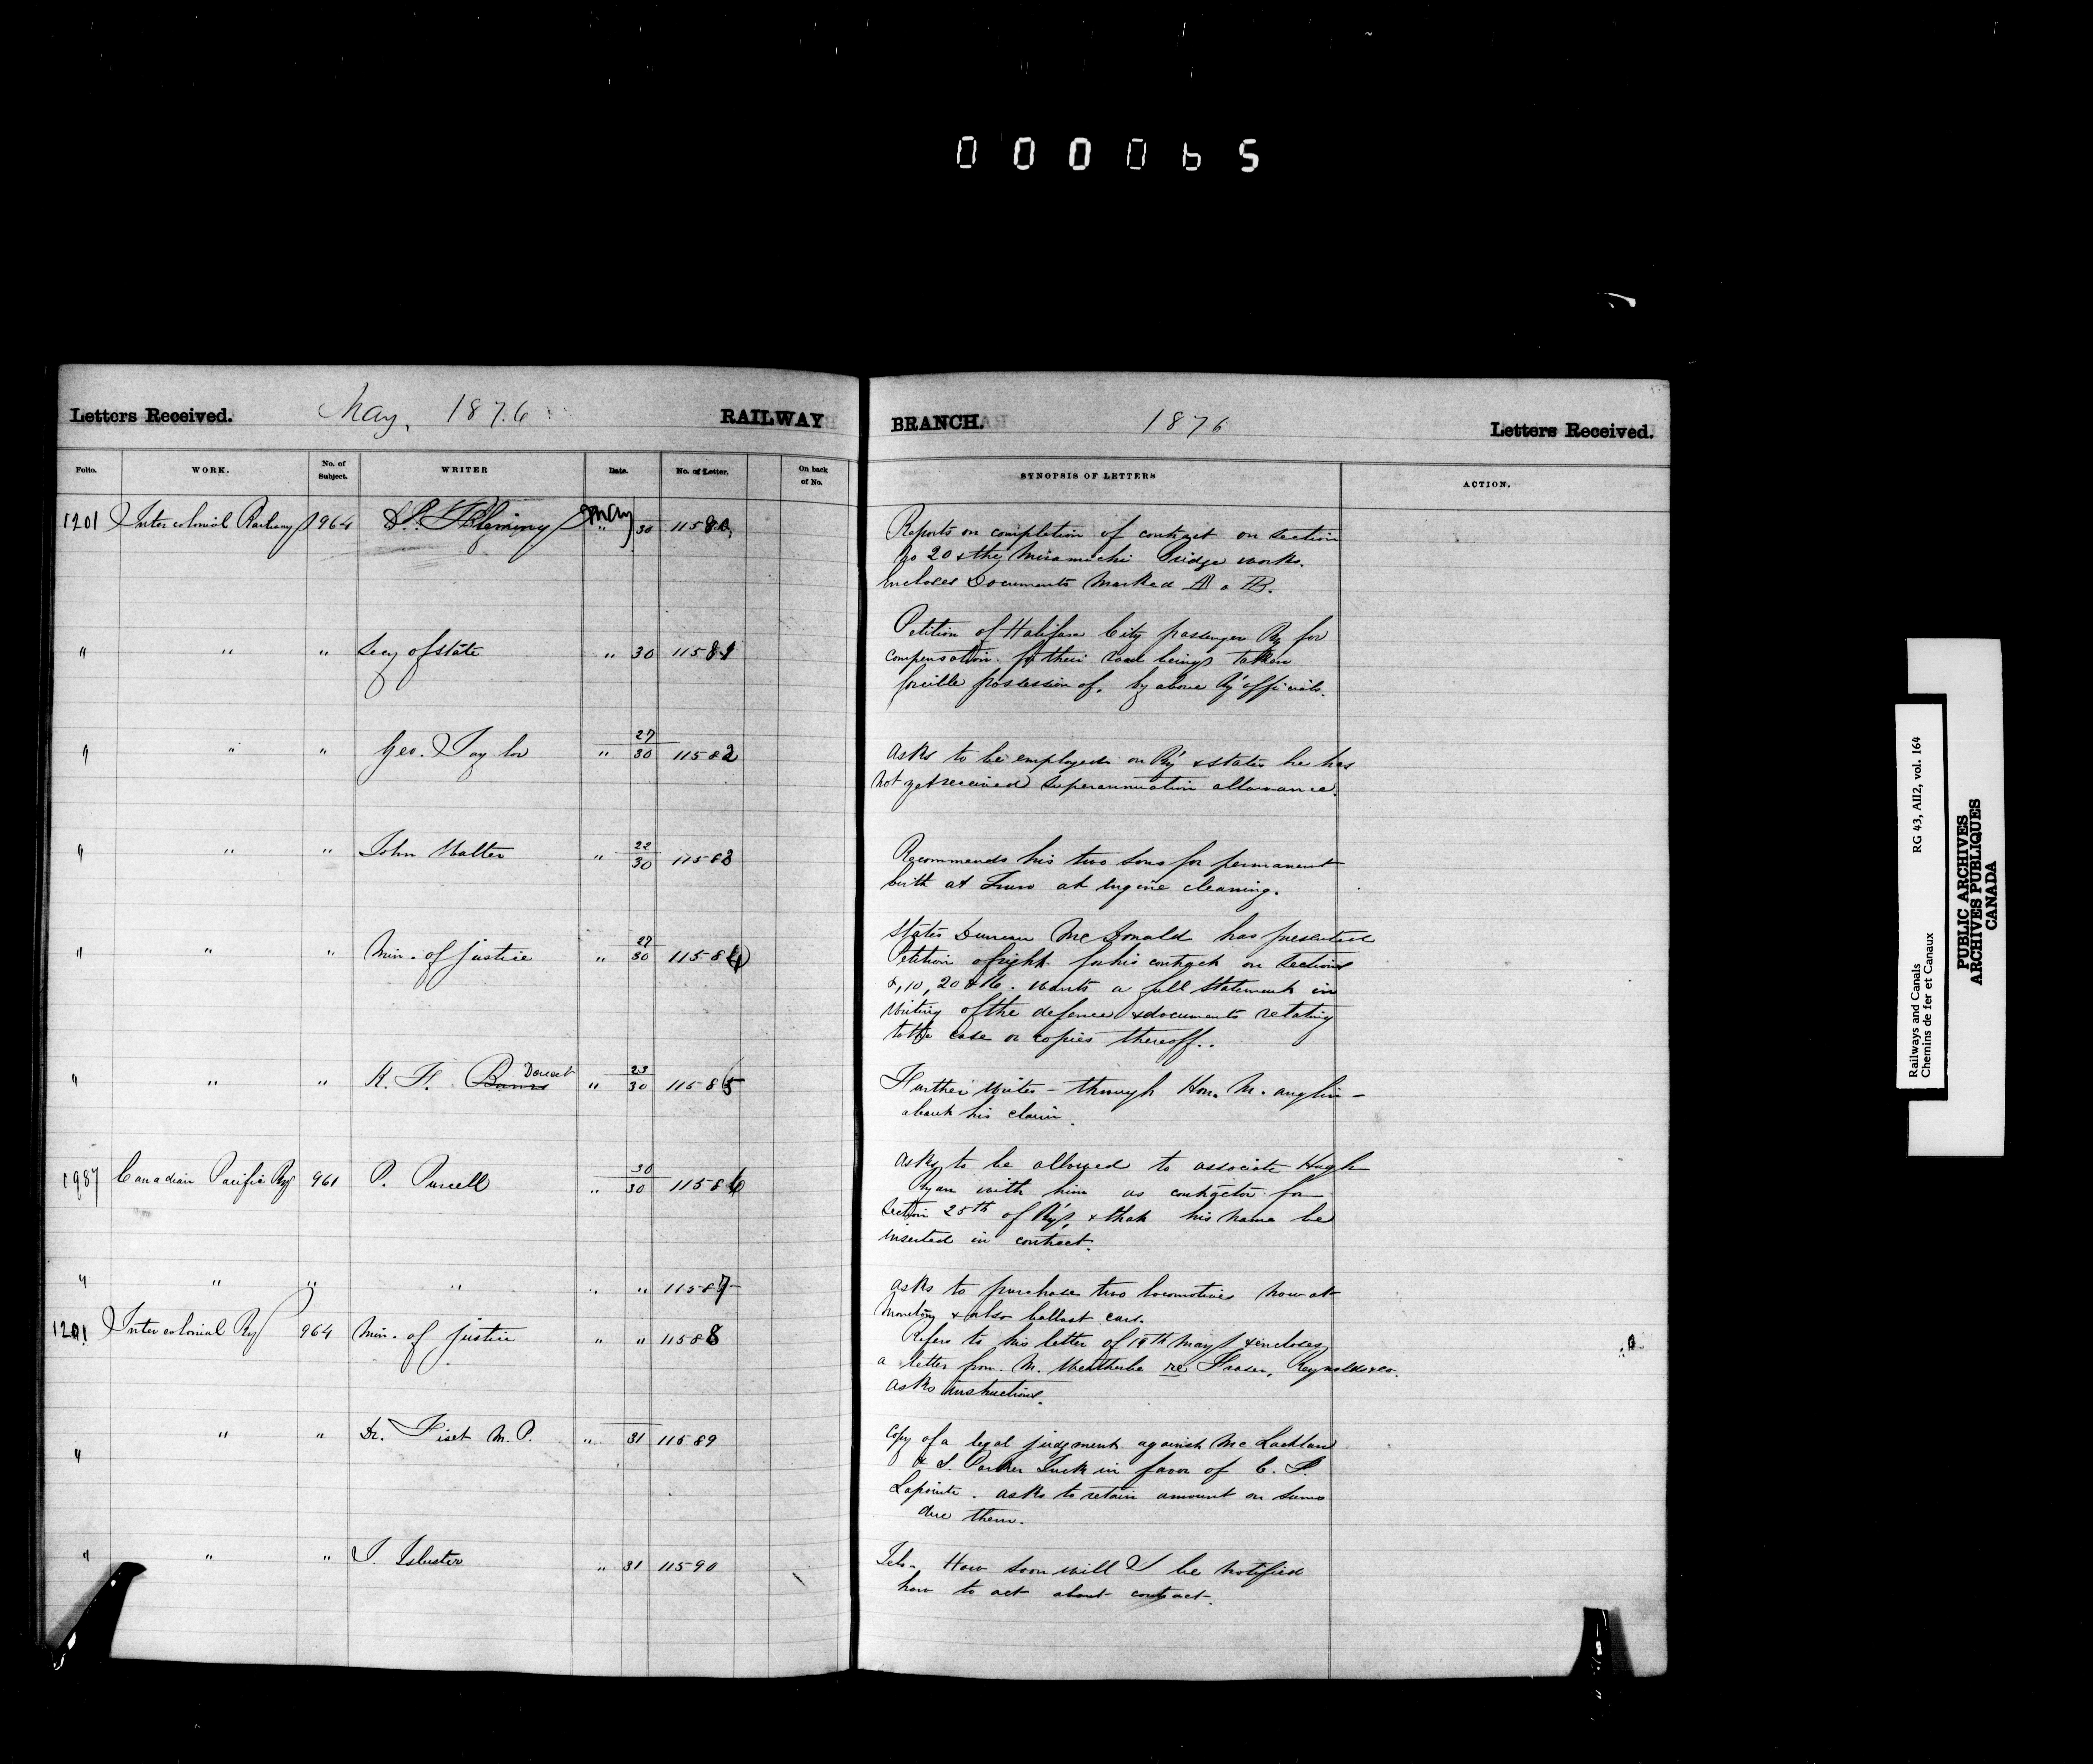 000065
Letters Received. May, 1876 RAILWAY
BRANCH. 1876 Letters Received.
Folio. WORK. No. of Subject. WRITER Date. No. of Letter. On back of No.
SYNOPSIS OF LETTERS ACTION.
1201 Intercolonial Railway 964 S. Fleming May 30 11580
Reports on completion of contract on section
No 20 & the Miramichi Bridge works.
Encloses Documents marked A & B.
" " " Secy of State " 30 11581
Petition of Halifax City passenger Ry for
compensation for their road being taken
forcible possession of, by above Ry officials.
" " " Geo. Taylor " 27/30 11582
asks to be employed on Ry & states he has
not yet received superannuation allowance.
" " " John Walter " 22/30 11583
Recommends his two sons for permanent
birth at Truro at engine cleaning.
" " " Min. of Justice " 27/30 11584
States Duncan McDonald has presented
Petition of right for his contract on sections
10, 20 & 16. wants a full statement in
writing of the defence & documents relating
to the case or copies thereoff.
" " " K. F. Burns Doucet " 23/30 11585
Further writes - through Hon. M. Anglin -
about his claim.
1987 Canadian Pacific Ry 961 P. Purcell " 30/30 11586
asks to be allowed to associate Hugh
Ryan with him as contractor for
Section 25th of Ry, & that his name be
inserted in contract.
" " " " " " 11587
asks to purchase two locomotives now at
Moncton & also ballast cars.
1201 Intercolonial Ry 964 Min. of Justice " " 11588
Refers to his letter of 19th May & encloses
a letter from M. Weatherbe re Fraser, Reynolds & co.
asks instructions.
" " " Dr. Fiset M.P. " 31 11589
Copy of a legal judgment against Mc Lachlan
& S. Parker Tuck in favor of C. P.
Lapointe. asks to retain amount on sums
due them.
" " " J. Isbester " 31 11590
Tel. How soon will I be notified
how to act about contract.
Railways and Canals RG 43, AII2, vol. 164
Chemins de fer et Canaux
PUBLIC ARCHIVES
ARCHIVES PUBLIQUES
CANADA